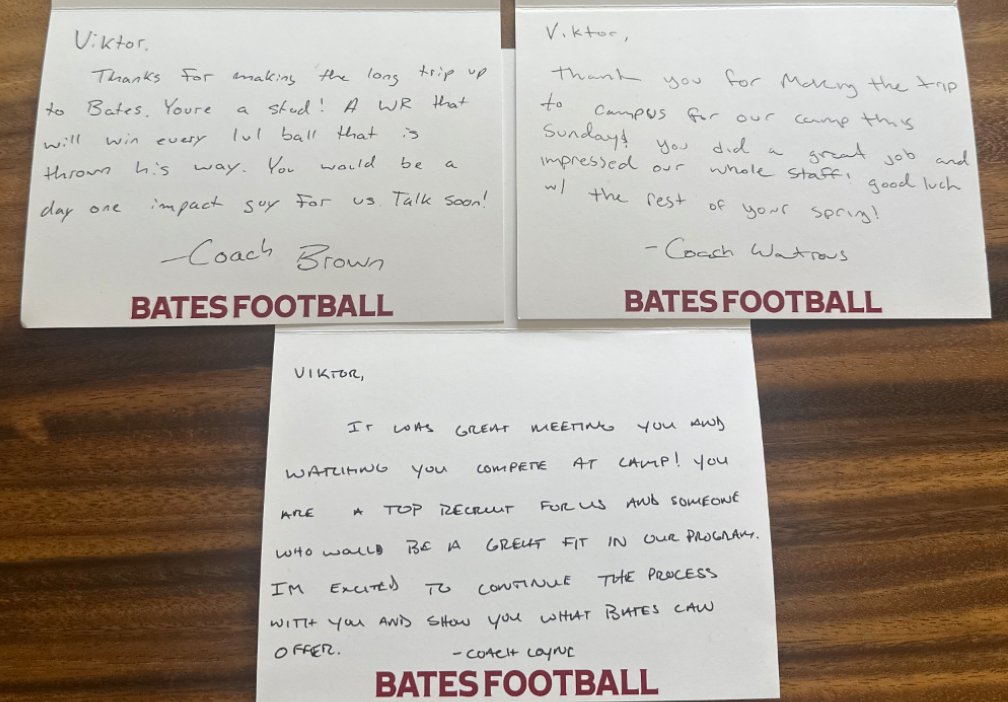 Viktor.
Thanks for making the long trip up
to Bates. Youre a stud! A WR that
will win every 1v1 ball that is
thrown his way. You would be a
day one impact guy for us. Talk soon!
-Coach Brown
BATES FOOTBALL
Viktor,
Thank you for making the trip
to campus for our camp this
Sunday! you did a great job and
impressed our whole staff! good luck
w/ the rest of your spring!
-Coach Watrous
BATES FOOTBALL
VIKTOR,
IT WAS GREAT MEETING YOU AND
WATCHING YOU COMPETE AT CAMP! YOU
ARE A TOP RECRUIT FOR US AND SOMEONE
WHO WOULD BE A GREAT FIT IN OUR PROGRAM.
IM EXCITED TO CONTINUE THE PROCESS
WITH YOU AND SHOW YOU WHAT BATES CAN
OFFER. -COACH COYNE
BATES FOOTBALL